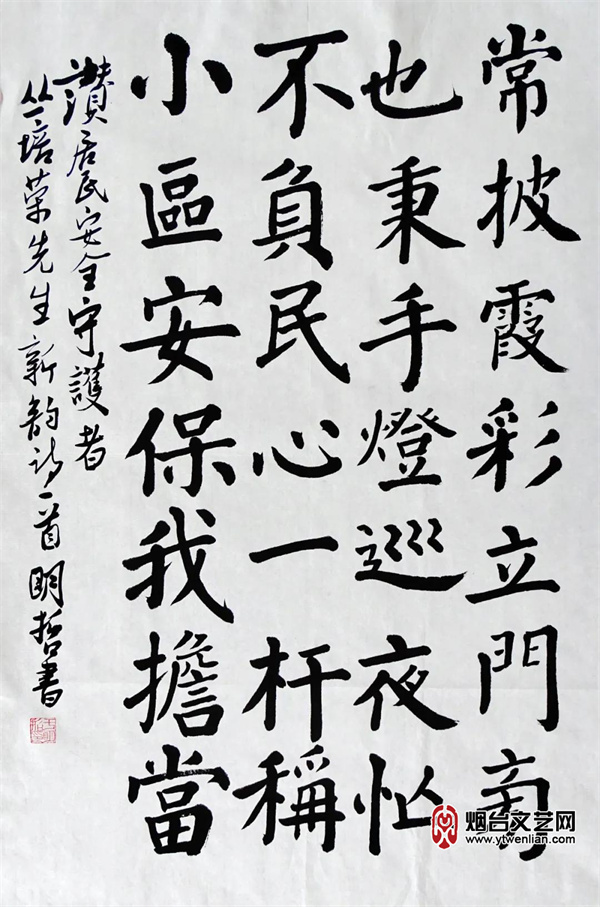 常披霞彩立門旁
也秉手燈巡夜忙
不負民心一杆稱
小區安保我擔當
讚居民安全守護者
丛培荣先生新韵诗一首 明哲書
烟台文艺网
www.ytwenlian.com